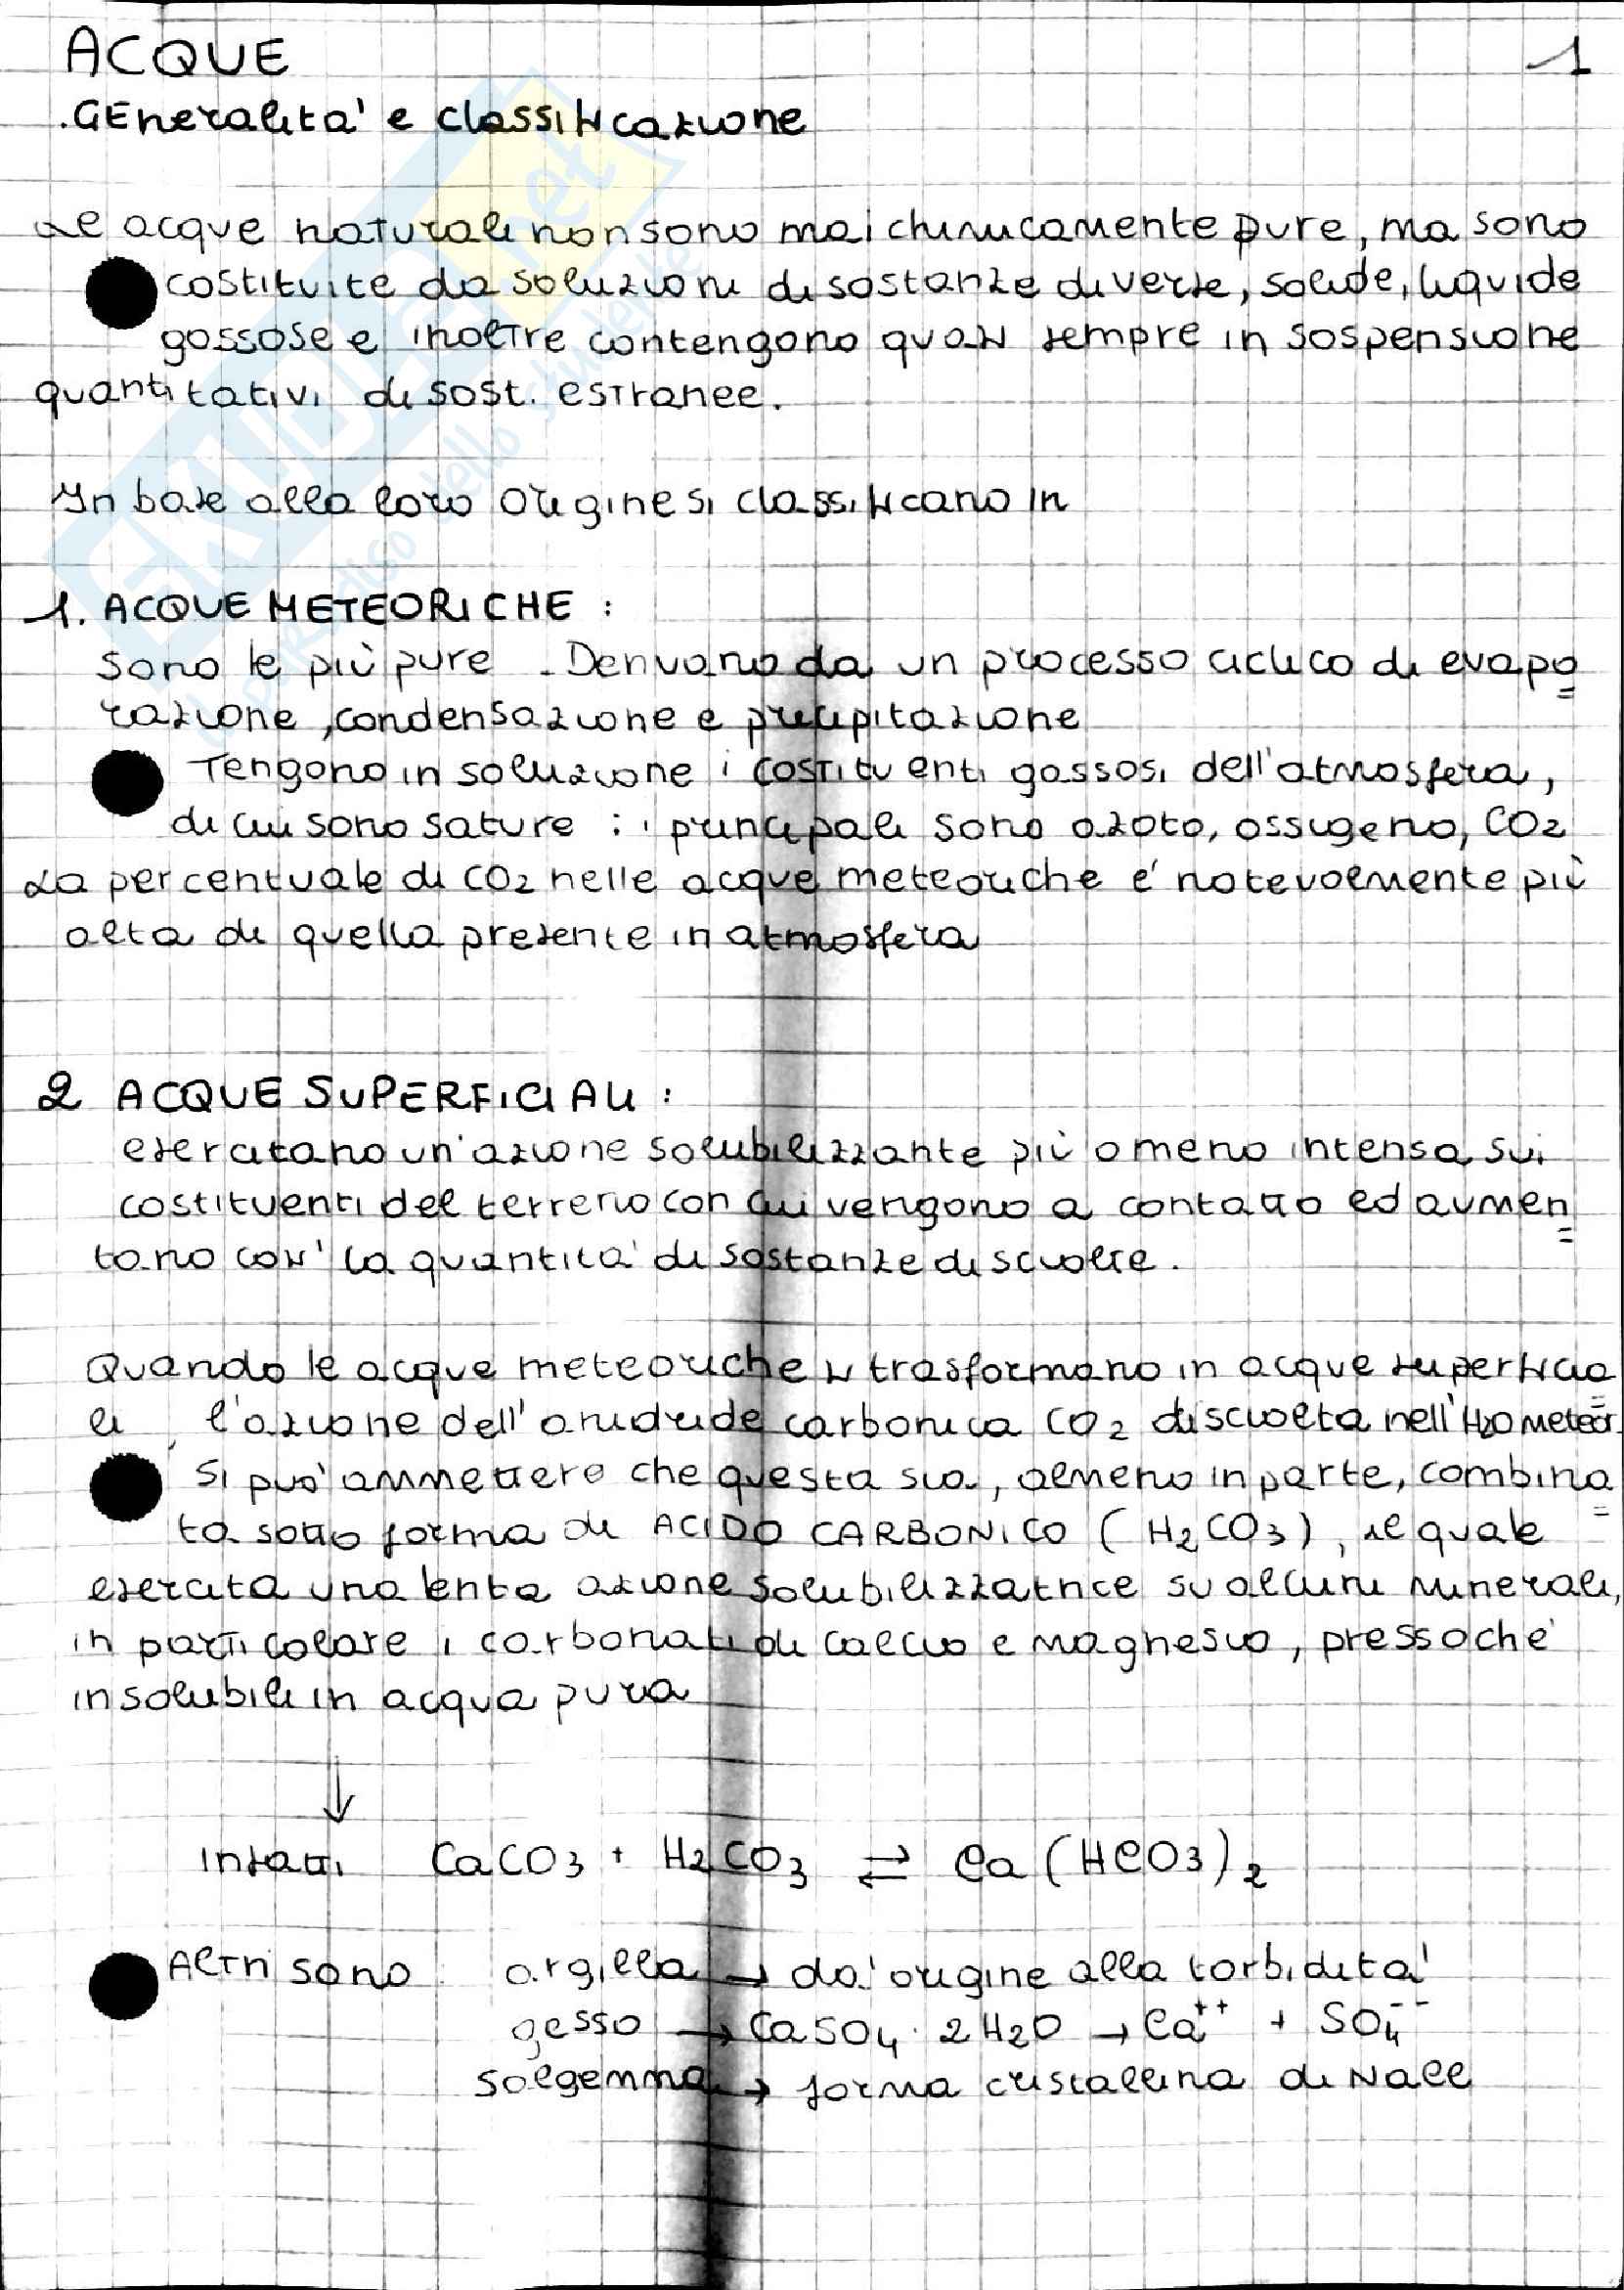 ACQUE
1
.GEneralita' e classificazione
Le acque naturali non sono mai chimicamente pure, ma sono
costituite da soluzioni di sostanze diverse, solide, liquide
gassose e inoltre contengono quasi sempre in sospensione
quantitativi di sost. estranee.
In base alla loro origine si classificano in
1. ACQUE METEORICHE :
sono le più pure. Derivano da un processo ciclico di evapo
razione, condensazione e precipitazione
Tengono in soluzione i costituenti gassosi dell'atmosfera,
di cui sono sature : i principali sono azoto, ossigeno, CO2
La percentuale di CO2 nelle acque meteoriche e' notevolmente più
alta di quella presente in atmosfera
2 ACQUE SUPERFICIALI :
esercitano un'azione solubilizzante più o meno intensa sui
costituenti del terreno con cui vengono a contatto ed aumen
tano cosi' la quantita' di sostanze disciolte.
Quando le acque meteoriche si trasformano in acque superficia
li, l'azione dell'anidride carbonica CO2 disciolta nell'H2O meteor.
Si puo' ammettere che questa sia, almeno in parte, combina
ta sotto forma di ACIDO CARBONICO (H2CO3), il quale
esercita una lenta azione solubilizzatrice su alcuni minerali,
in particolare i carbonati di calcio e magnesio, pressoche'
insolubili in acqua pura
↓
Infatti CaCO3 + H2CO3 ⇄ Ca(HCO3)2
Altri sono argilla → da' origine alla torbidita'
gesso → CaSO4 · 2H2O → Ca++ + SO4--
salgemma → forma cristallina di NaCl
SKUOLA.net